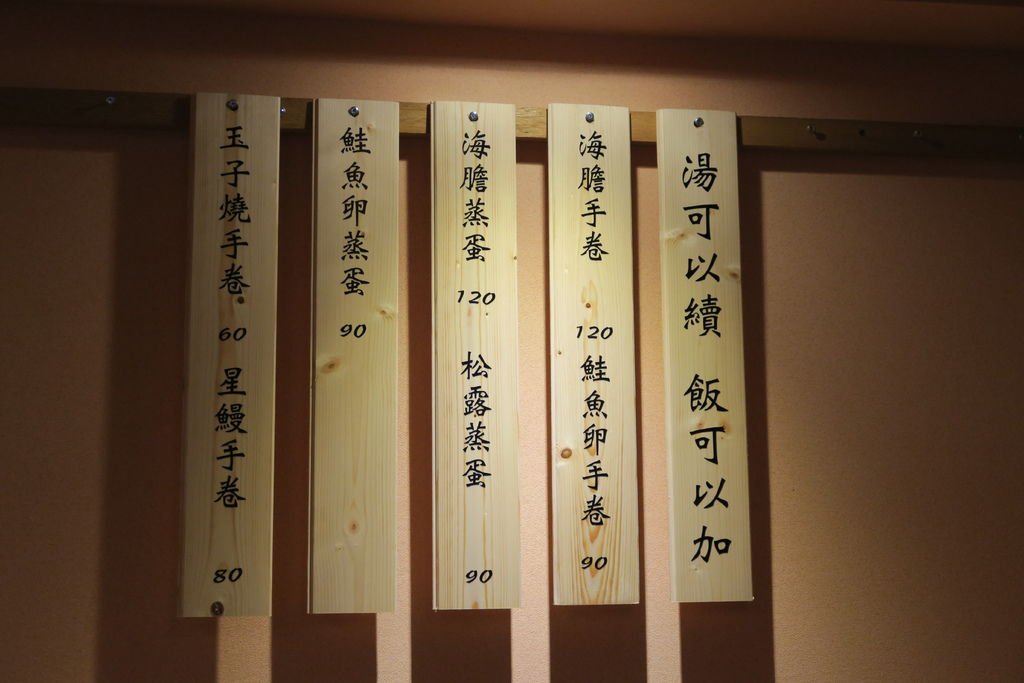 湯可以續 飯可以加
海膽手卷 120
鮭魚卵手卷 90
海膽蒸蛋 120
松露蒸蛋 90
鮭魚卵蒸蛋 90
玉子燒手卷 60
星鰻手卷 80